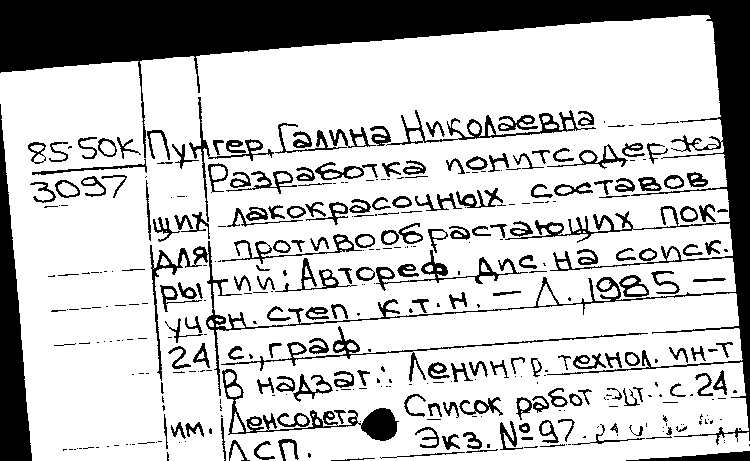 85-50К Пунгер, Галина Николаевна
3097 Разработка понитсодержа
щих лакокрасочных составов
для противообрастающих пок-
рытий: Автореф. дис. на соиск.
учен. степ. к.т.н. — Л., 1985. —
24 с., граф.
В надзаг.: Ленингр. технол. ин-т
им. Ленсовета Список работ авт.: с. 24.
ДСП. Экз. № 97.